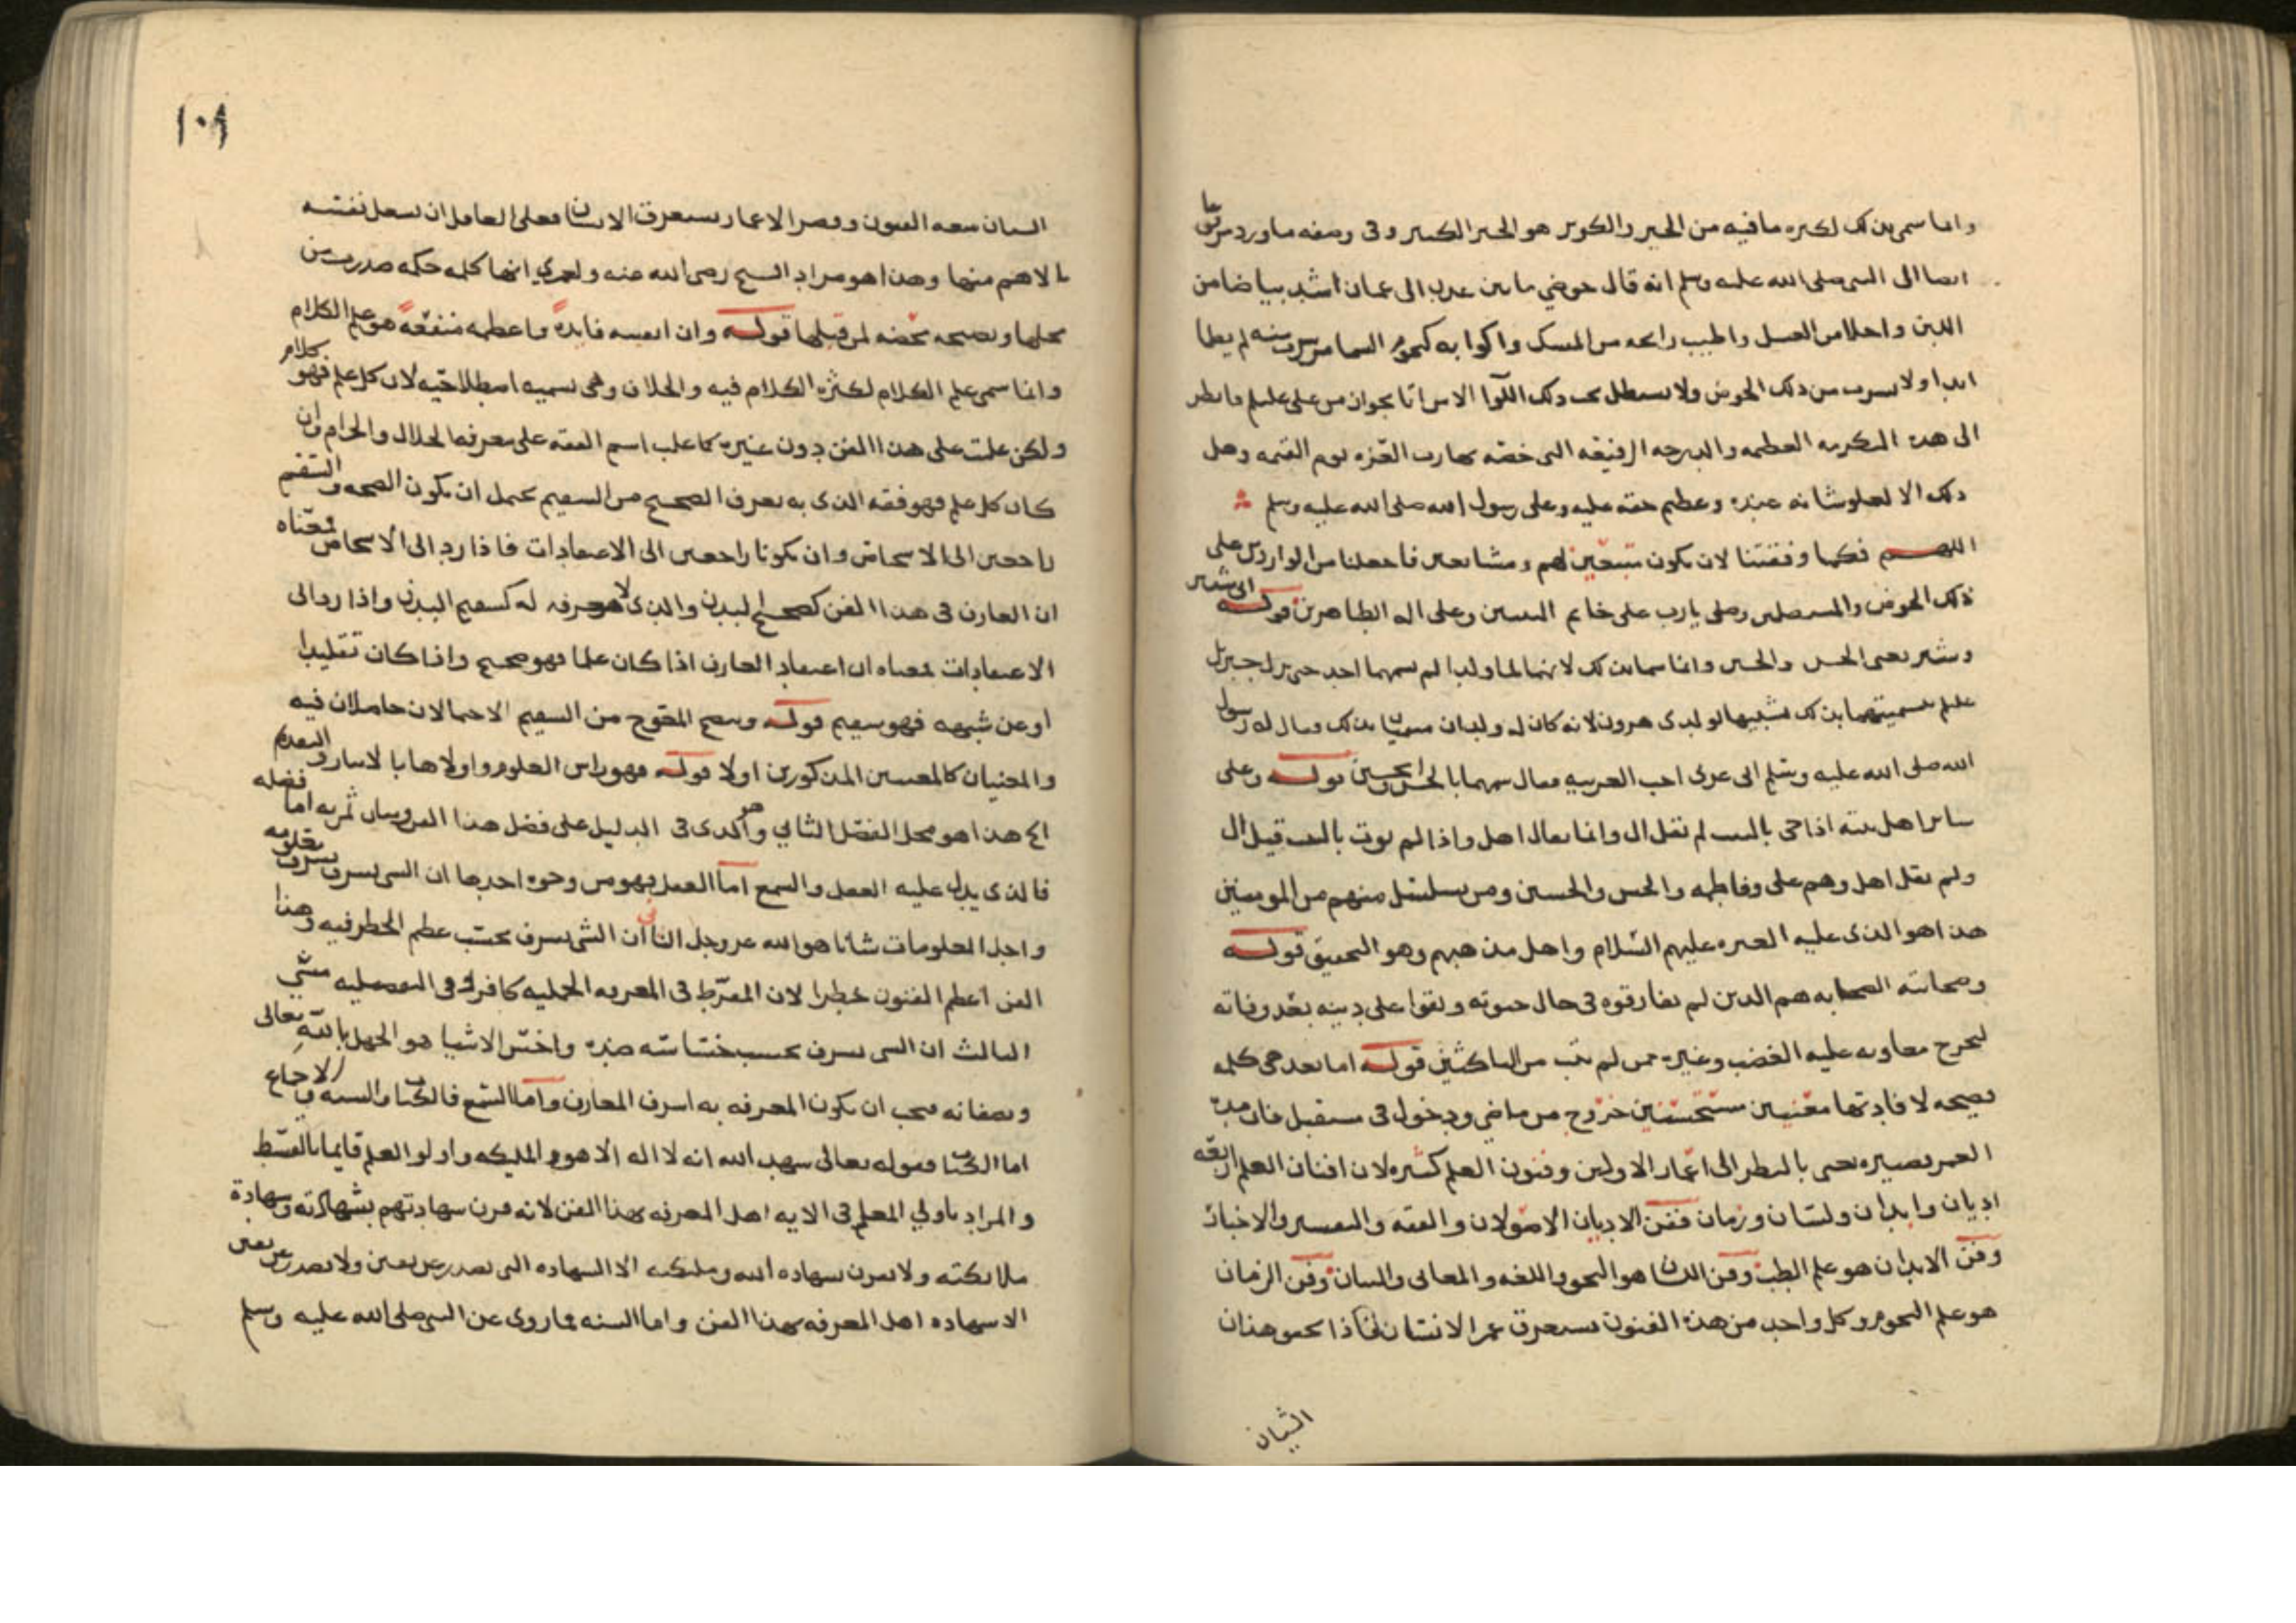 وانما سمي بذلك لكثره ما فيه من الخير والكوثر هو الخير الكثير وفي وصفه ما ورد مرفوعا
ايضا الى النبي صلى الله عليه وسلم انه قال حوضي ما بين عدن الى عمان اشد بياضا من
اللبن واحلا من العسل واطيب رايحه من المسك واكوابه كنجوم السما من شرب منه لم يظما
ابدا ولا يشرب من ذلك الحوض ولا يستظل تحت ذلك اللوا الا من اتا بجواز من علي علىلم فانظر
الى هذه المكرمه العظيمه والدرجه الرفيعه التي خصه بها رب العزه يوم القيمه وهل
ذلك الا لعلو شانه عنده وعظيم حقه عليه وعلى رسول الله صلى الله عليه وسلم
اللهم فكما وفقتنا لان نكون متبعين لهم ومشايعين فاجعلنا من الواردين على
ذلك الحوض والمستظلين وصلى يارب على خاتم النبيين وعلى اله الطاهرين قوله الى شبير
وشبر يعني الحسن والحسين وانما سميا بذلك لانهما لما ولدا لم يسمهما احد حتى نزل جبريل
علىلم بتسميتهما بذلك تشبيها لولدى هرون لانه كان له ولدان مسميان بذلك وقال له رسول
الله صلى الله عليه وسلم انى عربى احب العربيه فقال سمهما بالحسن والحسين قوله وعلى
ساير اهل بيته اذا جى بالبيت لم نقل ال وانما يقال اهل واذا لم يوت بالبيت قيل ال
ولم نقل اهل وهم على وفاطمه والحسن والحسين ومن ينتسل منهم من المومنين
هذا هو الذى عليه العتره عليهم السلام واهل مذهبهم وهو التحقيق قوله
وصحابته الصحابه هم الذين لم يفارقوه في حال حيوته وبقوا على دينه بعد وفاته
ليخرج معاويه عليه الغضب وغيره ممن لم يتب من الناكثين قوله اما بعد هي كلمه
فصيحه لافادتها معنيين مستحسنين خروج من ماضي ودخول في مستقبل فان مده
العمر قصيره يعنى بالنظر الى اعمار الاولين وفنون العلم كثيره لان افنان العلم اربعه
اديان وابدان ولسان وزمان ففن الاديان الاصولان والفقه والتفسير والاخبار
وفن الابدان هو علم الطب وفن اللسان هو النحو واللغه والمعانى والبيان وفن الزمان
هو علم النجوم وكل واحد من هذه الفنون يستغرق عمر الانسان فاذا تحقق هذان
الشيان
١٠٨
الشيان سعه الفنون وقصر الاعمار يستغرق الانسان فعلى العاقل ان يشغل نفسه
بالاهم منها وهذا هو مراد الشيخ رضى الله عنه ولعمري انها كلمه حكمه صدرت من
محلها ونصيحه محضه لمن قبلها قوله وان انفسه فايدة واعظمه منفعة هو علم الكلام
وانما سمى علم الكلام لكثره الكلام فيه والخلاف وهى تسميه اصطلاحيه لان كل علم فهو كلام
ولكن غلبت على هذا الفن دون غيره كما غلب اسم الفقه على معرفه الحلال والحرام وان
كان كل علم فهو فقه الذى به يعرف الصحيح من السقيم يحتمل ان يكون الصحه والسقم
راجعين الى الاشخاص وان يكونا راجعين الى الاعتقادات فاذا رد الى الاشخاص فمعناه
ان العارف في هذا الفن كصحيح البدن والذى لا معرفه له كسقيم البدن واذا رد الى
الاعتقادات فمعناه ان اعتقاد العارف اذا كان علما فهو صحيح واذا كان تقليدا
او عن شبهه فهو سقيم قوله وسح المقوح من السقيم الاحتمالان حاصلان فيه
والمعنيان كالمعنيين المذكورين اولا قوله فهو راس العلوم واولاها بالايثار والتقديم
الخ هذا هو محل الفصل الثاني وهو الذى في الدليل على فضل هذا الفن وبيان ثمرته اما فضله
فالذى يدل عليه العقل والسمع اما العقل فهو من وجوه احدها ان الشى يشرف بشرف معلومه
واجل المعلومات شانا هو الله عز وجل الثانى ان الشى يشرف بحسب عظم الخطر فيه وهذا
الفن اعظم الفنون خطرا لان المفرط في المعرفه الجمليه كافر وفى التفصيليه مشى
الثالث ان الشى يشرف بحسب خساسه ضده واخس الاشيا هو الجهل بالله تعالى
وبصفاته فيجب ان تكون المعرفه به اشرف المعارف واما السمع فالكتاب والسنه والاجماع
اما الكتاب فقوله تعالى شهد الله انه لا اله الا هو والمليكه واولو العلم قايما بالقسط
والمراد باولي العلم في الايه اهل المعرفه بهذا الفن لانه قرن شهادتهم بشهادته وشهادة
ملائكته ولا يقرن بشهاده الله وملىكته الا الشهاده التى تصدر عن يقين ولا تصدر عن يقين
الا شهاده اهل المعرفه بهذا الفن واما السنه فما روى عن النبى صلى الله عليه وسلم